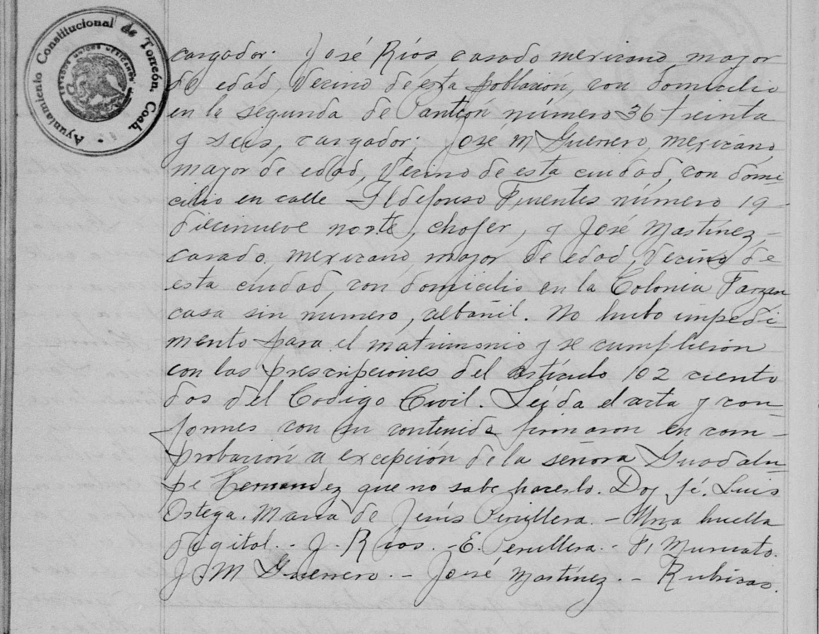 Ayuntamiento Constitucional de Torreón, Coah.
ESTADOS UNIDOS MEXICANOS
cargador. José Ríos, casado mexicano, mayor
de edad, vecino de esta población, con domicilio
en la segunda de Panteón número 36 treinta
y seis, cargador; José M Guerrero, mexicano,
mayor de edad, vecino de esta ciudad, con domi-
cilio en calle Ildefonso Fuentes número 19
diecinueve norte, chofer, y José Martínez,
casado, mexicano, mayor de edad, vecino de
esta ciudad, con domicilio en la Colonia
casa sin número, albañil. No hubo impedi-
mento para el matrimonio y se cumplieron
con las prescripciones del artículo 102 ciento
dos del Código Civil. Leída el acta y con-
formes con su contenido firmaron en com-
probación a excepción de la señora Guadalu-
pe Hernandez que no sabe hacerlo. Doy fé. Luis
Ortega. María de Jesús - Una huella
digital. - J. Ríos. - E. - 
J M Guerrero. - José Martínez. - Rubricas.